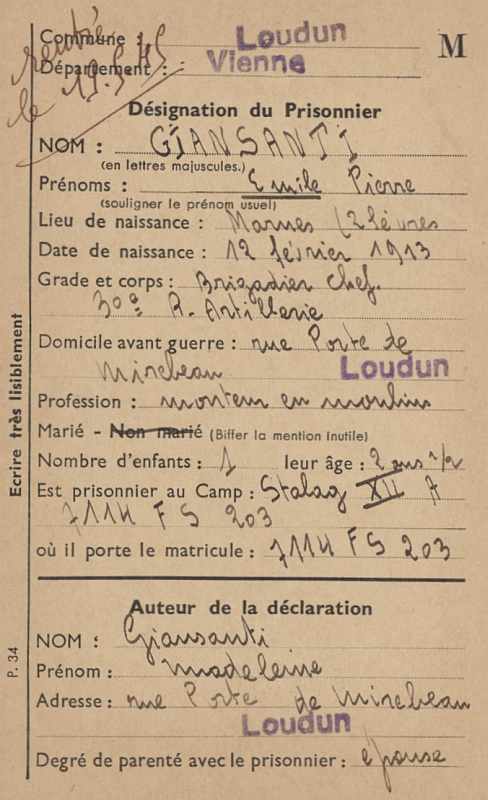 rentré
le 19.5.45
Commune : Loudun
M
Département : Vienne
Désignation du Prisonnier
NOM : GIANSANTI
(en lettres majuscules.)
Prénoms : Emile Pierre
(souligner le prénom usuel)
Lieu de naissance : Marnes (2 Sèvres
Date de naissance : 12 février 1913
Grade et corps : Brigadier Chef.
309e R. Artillerie
Domicile avant guerre : rue Porte de
Mirebeau Loudun
Profession : monteur en moulins
Marié - Non marié (Biffer la mention inutile)
Nombre d'enfants : 1 leur âge : 2 ans 1/2
Est prisonnier au Camp : Stalag XII A
7114 FS 203
où il porte le matricule : 7114 FS 203
Auteur de la déclaration
NOM : Giansanti
Prénom : Madeleine
Adresse : rue Porte de Mirebeau
Loudun
Degré de parenté avec le prisonnier : épouse
Ecrire très lisiblement
P. 34